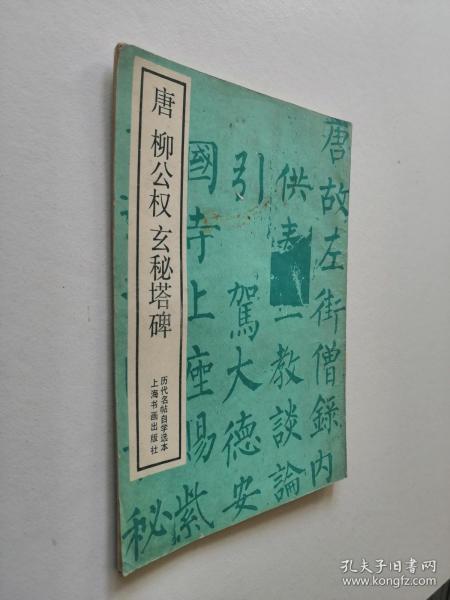 唐 柳公权 玄秘塔碑
历代名帖自学选本
上海书画出版社
唐故左街僧録内
供奉三教談論
引駕大德安
國寺上座賜紫
秘
孔夫子旧书网
www.kongfz.com